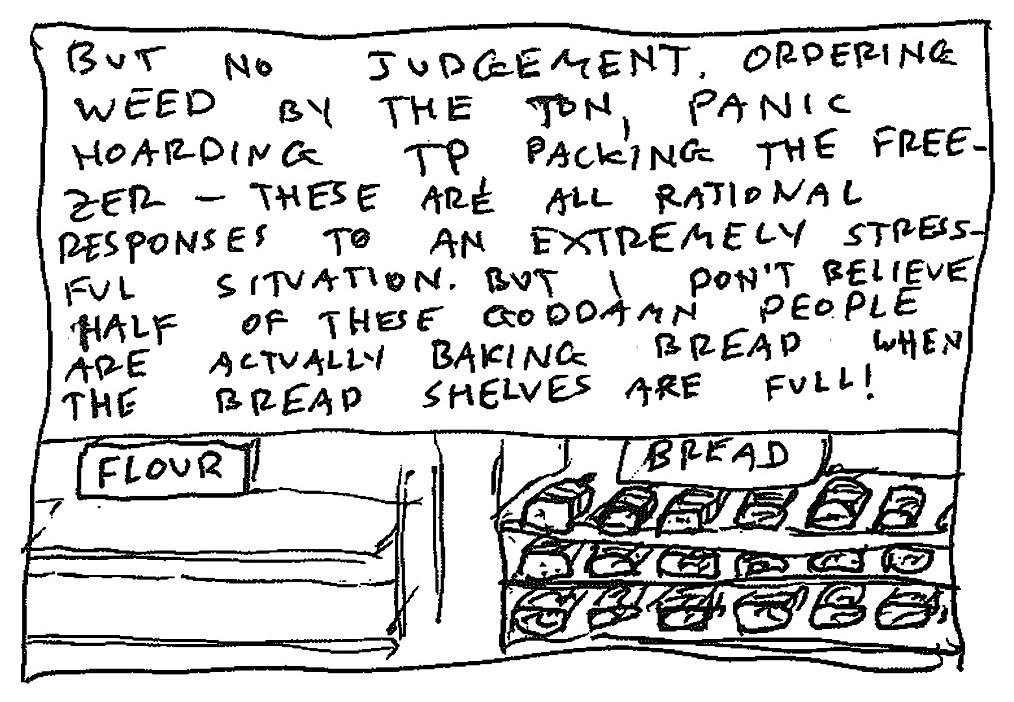 BUT NO JUDGEMENT. ORDERING
WEED BY THE TON, PANIC
HOARDING TP, PACKING THE FREE-
ZER - THESE ARE ALL RATIONAL
RESPONSES TO AN EXTREMELY STRESS-
FUL SITUATION. BUT I DON'T BELIEVE
HALF OF THESE GODDAMN PEOPLE
ARE ACTUALLY BAKING BREAD WHEN
THE BREAD SHELVES ARE FULL!
FLOUR
BREAD